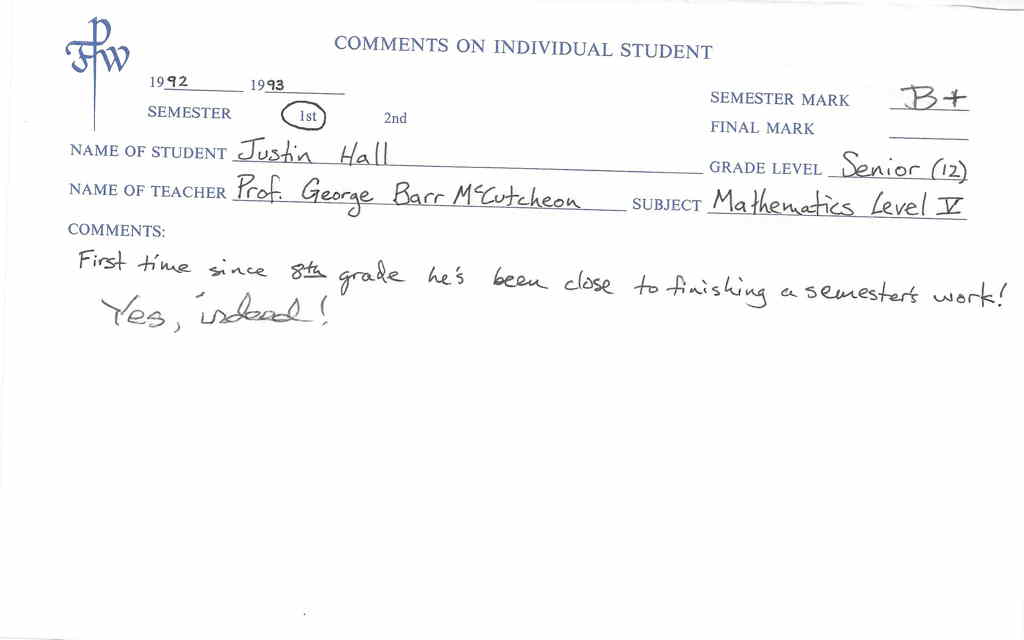 FPW
COMMENTS ON INDIVIDUAL STUDENT
1992 1993
SEMESTER 1st 2nd
SEMESTER MARK B+
FINAL MARK
NAME OF STUDENT Justin Hall
GRADE LEVEL Senior (12)
NAME OF TEACHER Prof. George Barr McCutcheon SUBJECT Mathematics Level V
COMMENTS:
First time since 8th grade he's been close to finishing a semester's work!
Yes, indeed!